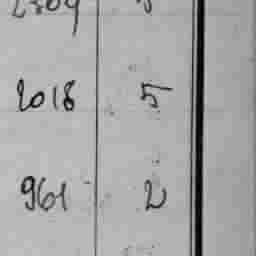 2018 5
961 2